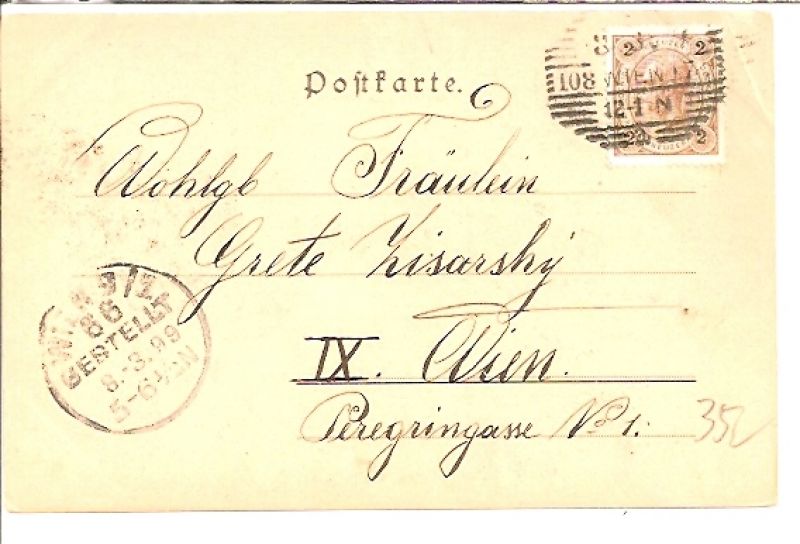 Postkarte.
2 2
108 WIEN
12-1 N
2 2
Wohlgb Fräulein
Grete Zisarsky
IX. Wien.
Peregringasse No 1.
WIEN 9/
86
BESTELLT
8.-3.99
5-6 N
35